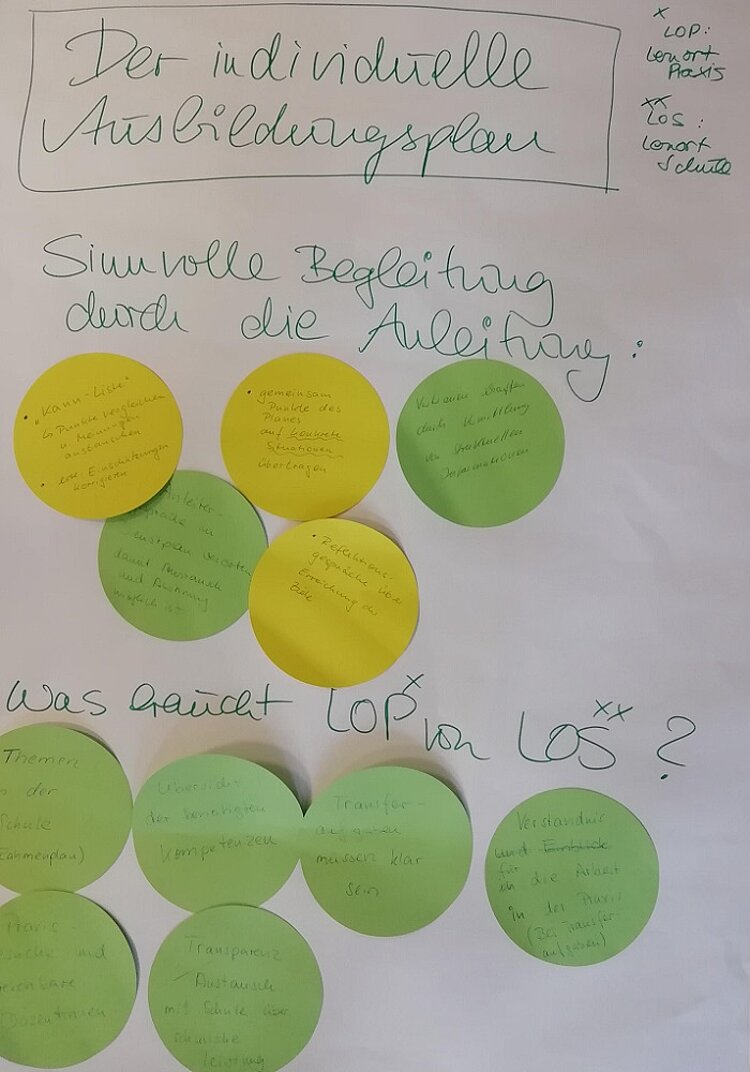 Der individuelle
Ausbildungsplan
x
LOP:
Lernort
Praxis
xx
LOS:
Lernort
Schule
Sinnvolle Begleitung
durch die Anleitung:
• "Kann-Liste"
↳ Punkte vergleichen
u. Meinungen
austauschen
• evtl. Einschätzungen
korrigieren
• gemeinsam
Punkte des
Planes
auf konkrete
Situationen
übertragen
Vertrauen schaffen
durch Vermittlung
von strukturellen
Informationen
Anleiter-
im
damit Austausch
und Planung
möglich ist
• Reflektions-
gespräche über
Erreichung der
Ziele
Was braucht LOP x von LOS xx ?
Themen
der
Schule
Rahmenplan)
Übersicht
der benötigten
Kompetenzen
Transfer-
aufgaben
müssen klar
sein
Verständnis
und Einblick
für
in die Arbeit
in der Praxis
(Bei Transfer-
aufgaben)
Praxis-
besuche und
erreichbare
Dozentinnen
Transparenz
/ Austausch
mit Schule über
schulische
Leistung